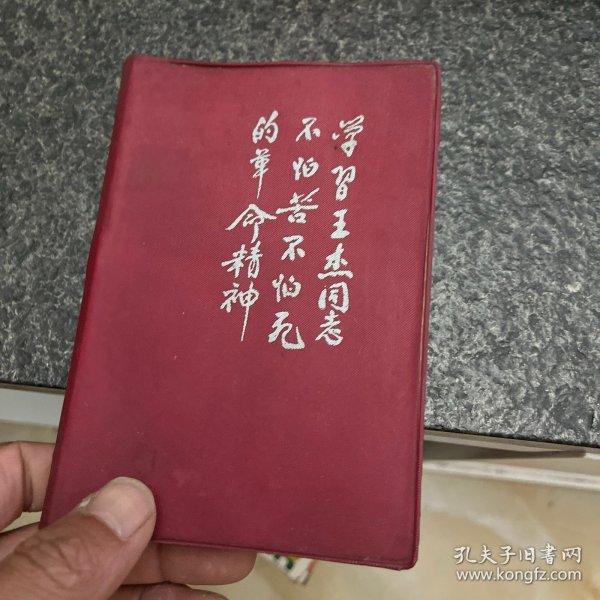 学習王杰同志
不怕苦不怕死
的革命精神
孔夫子旧書网
www.kongfz.com